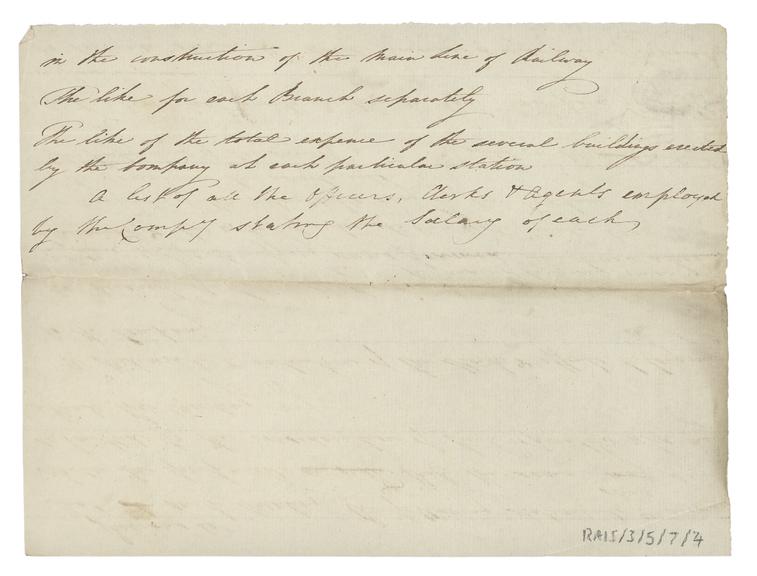 in the construction of the main line of Railway
The like for each Branch separately
The like of the total expence of the several buildings erected
by the Company at each particular station
A list of all the Officers, Clerks & Agents employed
by the Compy stating the Salary of each
RAIS/3/5/7/4